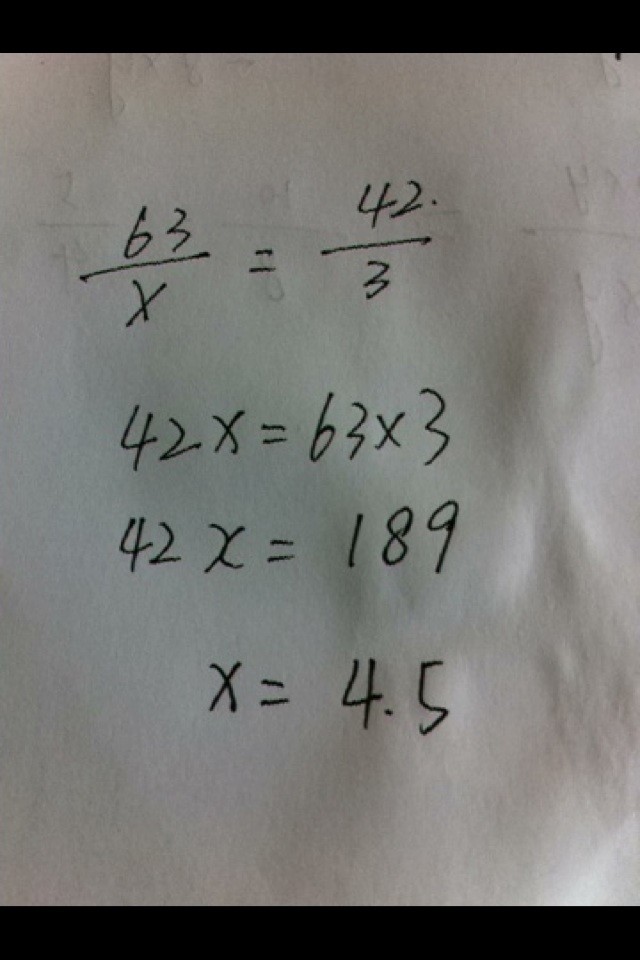 63/x = 42/3
42x = 63×3
42x = 189
x = 4.5